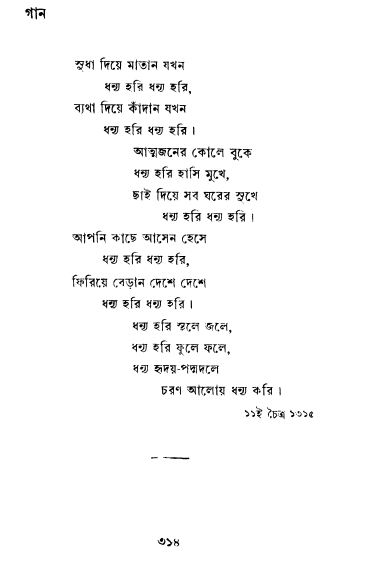 গান
সুধা দিয়ে মাতান যখন
ধন্য হরি ধন্য হরি,
ব্যথা দিয়ে কাঁদান যখন
ধন্য হরি ধন্য হরি।
আত্মজনের কোলে বুকে
ধন্য হরি হাসি মুখে,
ছাই দিয়ে সব ঘরের সুখে
ধন্য হরি ধন্য হরি।
আপনি কাছে আসেন হেসে
ধন্য হরি ধন্য হরি,
ফিরিয়ে বেড়ান দেশে দেশে
ধন্য হরি ধন্য হরি।
ধন্য হরি স্থলে জলে,
ধন্য হরি ফুলে ফলে,
ধন্য হৃদয়-পদ্মদলে
চরণ আলোয় ধন্য করি।
১১ই চৈত্র ১৩১৫
৩১৪